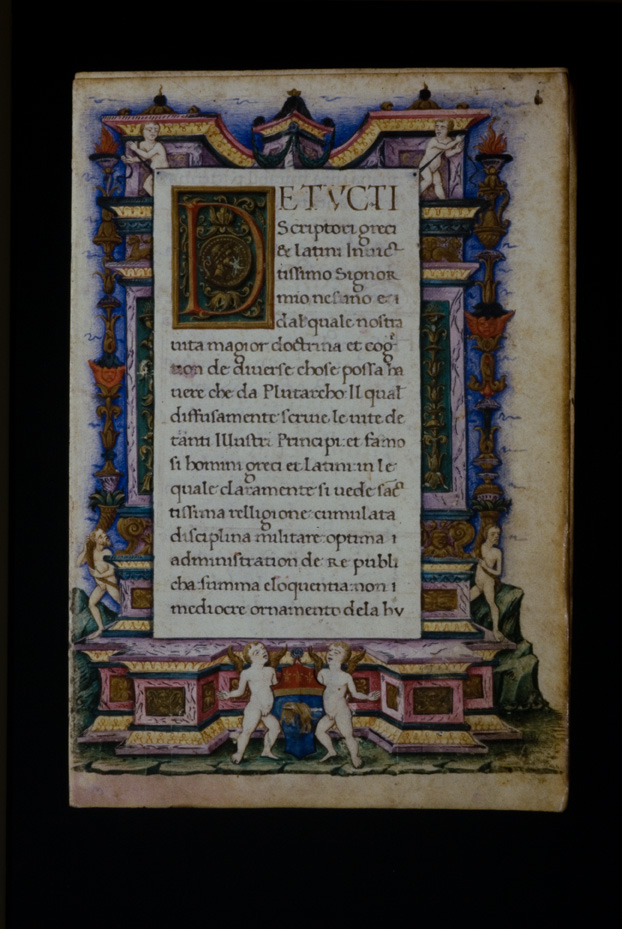 DE TVCTI
Scriptori greci
& Latini Inuic
tissimo Signor
mio nesuno e i
dal quale nostra
uita magior doctrina et cog
tion de diuerse chose possa ha
uere che da Plutarcho: Il qual
diffusamente scriue le uite de
tanti Illustri Principi: et famo
si homini greci et Latini: in le
quale claramente si uede sāc
tissima relligione: cumulata
disciplina militare: optima i
administration de Re publi
cha: summa eloquentia: non i
mediocre ornamento de la hv